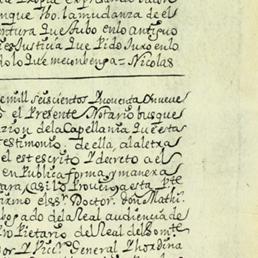 la mudanza de el
ntura que hubo en lo antiguo
es Justicia que Pido Juro en lo
Nicolas
mill seiscientos y noventa y nueve
el Presente Notario busque
zion de la Capellania que esta
testimonio de ella, a la letra
el escrito y Decreto a el
en Publica forma y manera
Assi lo Proveyo esta pte
firmo el sr. Doctor don Mathi.
bogado de la Real audiencia de
Pietario del Real del Monte
or y Vicr. General y hordina